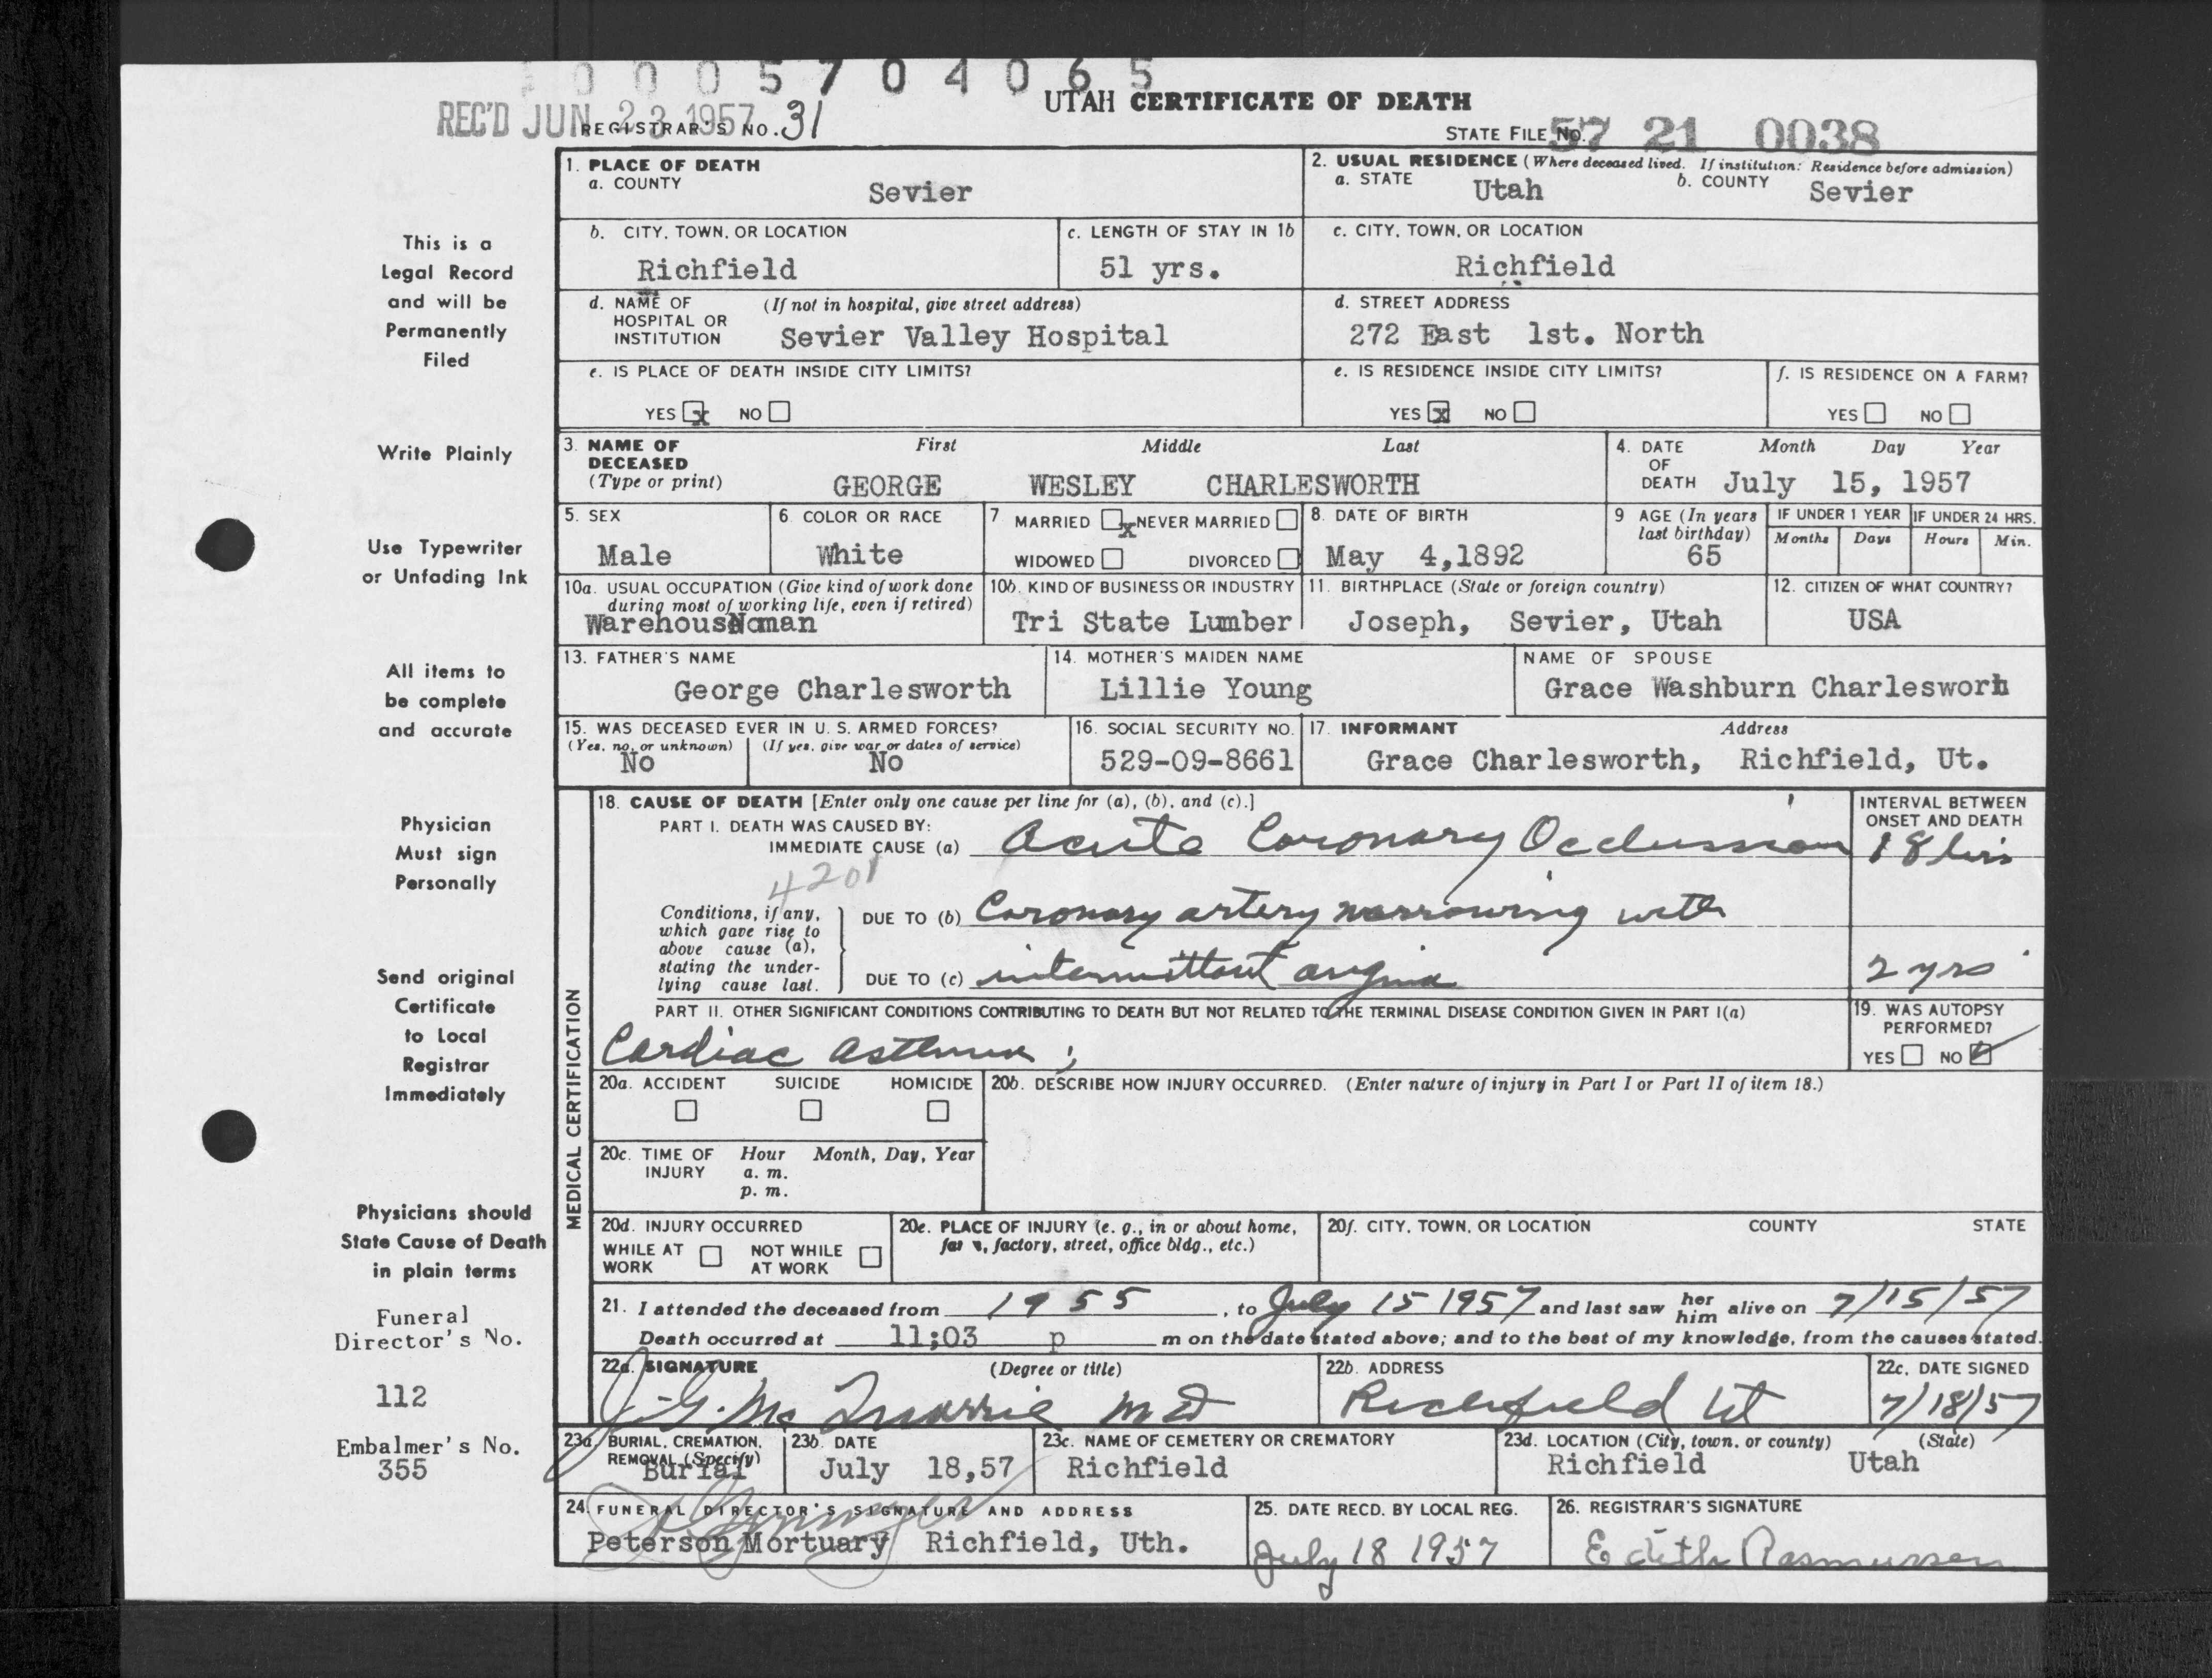 0 0 0 5 7 0 4 0 6 5
REC'D JUN 23 1957
REGISTRAR'S NO. 31
UTAH CERTIFICATE OF DEATH
STATE FILE NO. 57 21 0038
This is a
Legal Record
and will be
Permanently
Filed
Write Plainly
Use Typewriter
or Unfading Ink
All items to
be complete
and accurate
Physician
Must sign
Personally
Send original
Certificate
to Local
Registrar
Immediately
Physicians should
State Cause of Death
in plain terms
Funeral
Director's No.
112
Embalmer's No.
355
1. PLACE OF DEATH
a. COUNTY
Sevier
2. USUAL RESIDENCE (Where deceased lived. If institution: Residence before admission)
a. STATE Utah b. COUNTY Sevier
b. CITY, TOWN, OR LOCATION
Richfield
c. LENGTH OF STAY IN 1b
51 yrs.
c. CITY, TOWN, OR LOCATION
Richfield
d. NAME OF HOSPITAL OR INSTITUTION (If not in hospital, give street address)
Sevier Valley Hospital
d. STREET ADDRESS
272 East 1st. North
e. IS PLACE OF DEATH INSIDE CITY LIMITS?
YES x NO
e. IS RESIDENCE INSIDE CITY LIMITS?
YES x NO
f. IS RESIDENCE ON A FARM?
YES NO
3. NAME OF DECEASED (Type or print)
First Middle Last
GEORGE WESLEY CHARLESWORTH
4. DATE OF DEATH Month Day Year
July 15, 1957
5. SEX
Male
6. COLOR OR RACE
White
7 MARRIED x NEVER MARRIED
WIDOWED DIVORCED
8. DATE OF BIRTH
May 4,1892
9 AGE (In years last birthday)
65
IF UNDER 1 YEAR
Months Days
IF UNDER 24 HRS.
Hours Min.
10a. USUAL OCCUPATION (Give kind of work done
during most of working life, even if retired)
Warehouseman
10b. KIND OF BUSINESS OR INDUSTRY
Tri State Lumber
11. BIRTHPLACE (State or foreign country)
Joseph, Sevier, Utah
12. CITIZEN OF WHAT COUNTRY?
USA
13. FATHER'S NAME
George Charlesworth
14. MOTHER'S MAIDEN NAME
Lillie Young
NAME OF SPOUSE
Grace Washburn Charlesworh
15. WAS DECEASED EVER IN U. S. ARMED FORCES?
(Yes, no, or unknown) (If yes, give war or dates of service)
No No
16. SOCIAL SECURITY NO.
529-09-8661
17. INFORMANT Address
Grace Charlesworth, Richfield, Ut.
MEDICAL CERTIFICATION
18. CAUSE OF DEATH [Enter only one cause per line for (a), (b), and (c).]
PART I. DEATH WAS CAUSED BY:
IMMEDIATE CAUSE (a) Acute Coronary Occlusion
INTERVAL BETWEEN
ONSET AND DEATH
18 hrs
4201
Conditions, if any,
which gave rise to
above cause (a),
stating the under-
lying cause last.
DUE TO (b) Coronary artery narrowing with
DUE TO (c) intermittant angina
2 yrs
PART II. OTHER SIGNIFICANT CONDITIONS CONTRIBUTING TO DEATH BUT NOT RELATED TO THE TERMINAL DISEASE CONDITION GIVEN IN PART I(a)
Cardiac asthma ;
19. WAS AUTOPSY
PERFORMED?
YES NO
20a. ACCIDENT SUICIDE HOMICIDE
20b. DESCRIBE HOW INJURY OCCURRED. (Enter nature of injury in Part I or Part II of item 18.)
20c. TIME OF INJURY Hour Month, Day, Year
a. m.
p. m.
20d. INJURY OCCURRED
WHILE AT WORK NOT WHILE AT WORK
20e. PLACE OF INJURY (e. g., in or about home,
farm, factory, street, office bldg., etc.)
20f. CITY, TOWN, OR LOCATION COUNTY STATE
21. I attended the deceased from 1955, to July 15 1957 and last saw her him alive on 7/15/57
Death occurred at 11;03 p m on the date stated above; and to the best of my knowledge, from the causes stated.
22a. SIGNATURE (Degree or title)
J. G. McQuarrie MD
22b. ADDRESS
Richfield Ut
22c. DATE SIGNED
7/18/57
23a. BURIAL, CREMATION,
REMOVAL (Specify)
Burial
23b. DATE
July 18,57
23c. NAME OF CEMETERY OR CREMATORY
Richfield
23d. LOCATION (City, town, or county) (State)
Richfield Utah
24. FUNERAL DIRECTOR'S SIGNATURE AND ADDRESS
Peterson Mortuary Richfield, Uth.
25. DATE RECD. BY LOCAL REG.
July 18 1957
26. REGISTRAR'S SIGNATURE
Edith Rasmussen